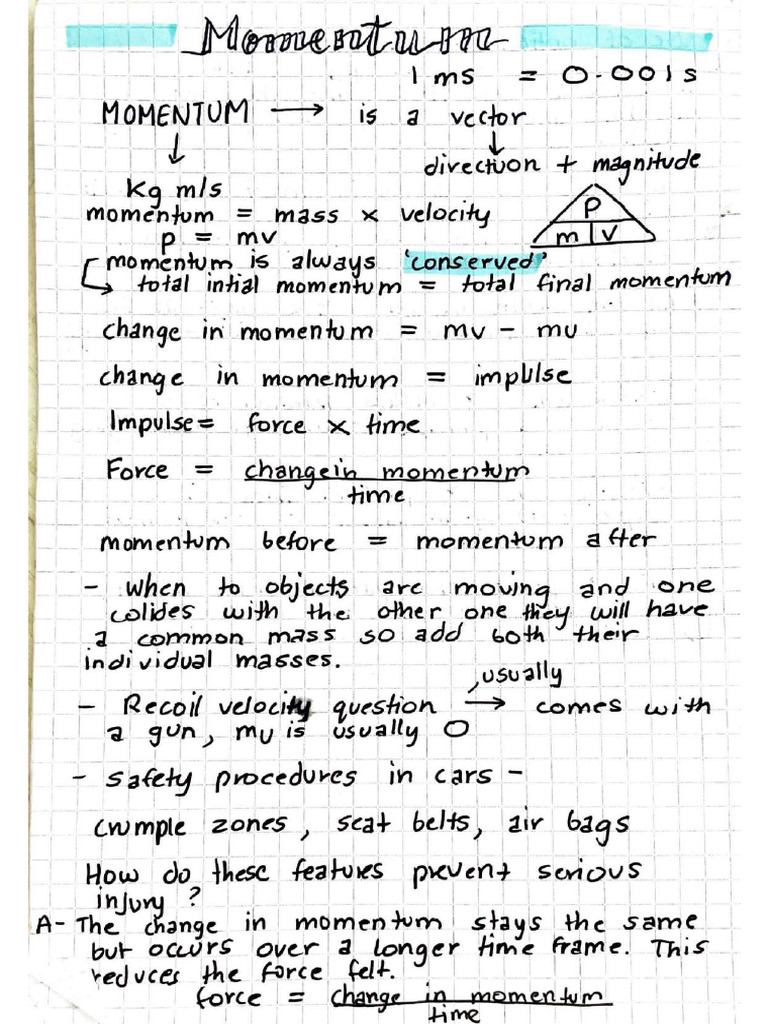 Momentum
1 ms = 0.001s
MOMENTUM → is a vector
↓ ↓
direction + magnitude
Kg m/s
momentum = mass x velocity
P
m v
p = mv
momentum is always 'conserved'
↳ total intial momentum = total final momentum
change in momentum = mv - mu
change in momentum = impulse
Impulse = force x time
Force = change in momentum
time
momentum before = momentum after
- when to objects are moving and one
colides with the other one they will have
a common mass so add both their
individual masses.
, usually
- Recoil velocity question → comes with
a gun, mu is usually 0
- safety procedures in cars -
crumple zones, seat belts, air bags
How do these features prevent serious
injury?
A- The change in momentum stays the same
but occurs over a longer time frame. This
reduces the force felt.
force = change in momentum
time